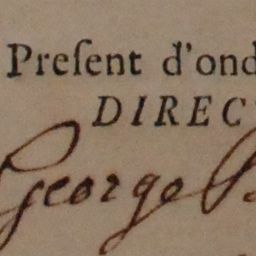 Preſent d'ond
DIREC
George